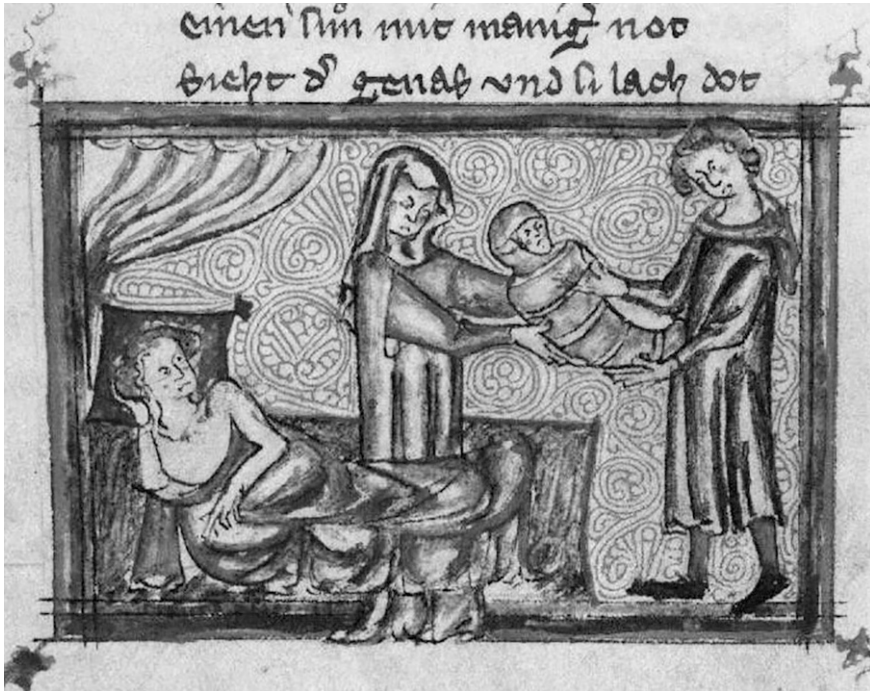 einen ſuͦn mit manig̾ not
Sieht d̾ genas vnd ſi lach dot